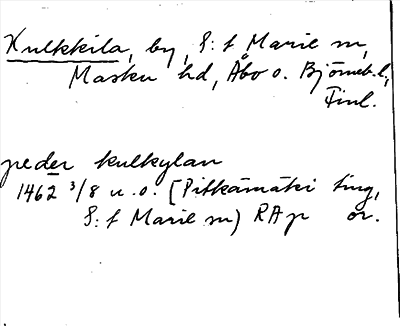 Kulkkila, by, S:t Marie sn,
Masku hd, Åbo o. Björneb. l,
Finl.
peder kulkylan
1462 3/8 u.o. [Pitkämäki ting,
S:t Marie sn) RAp or.